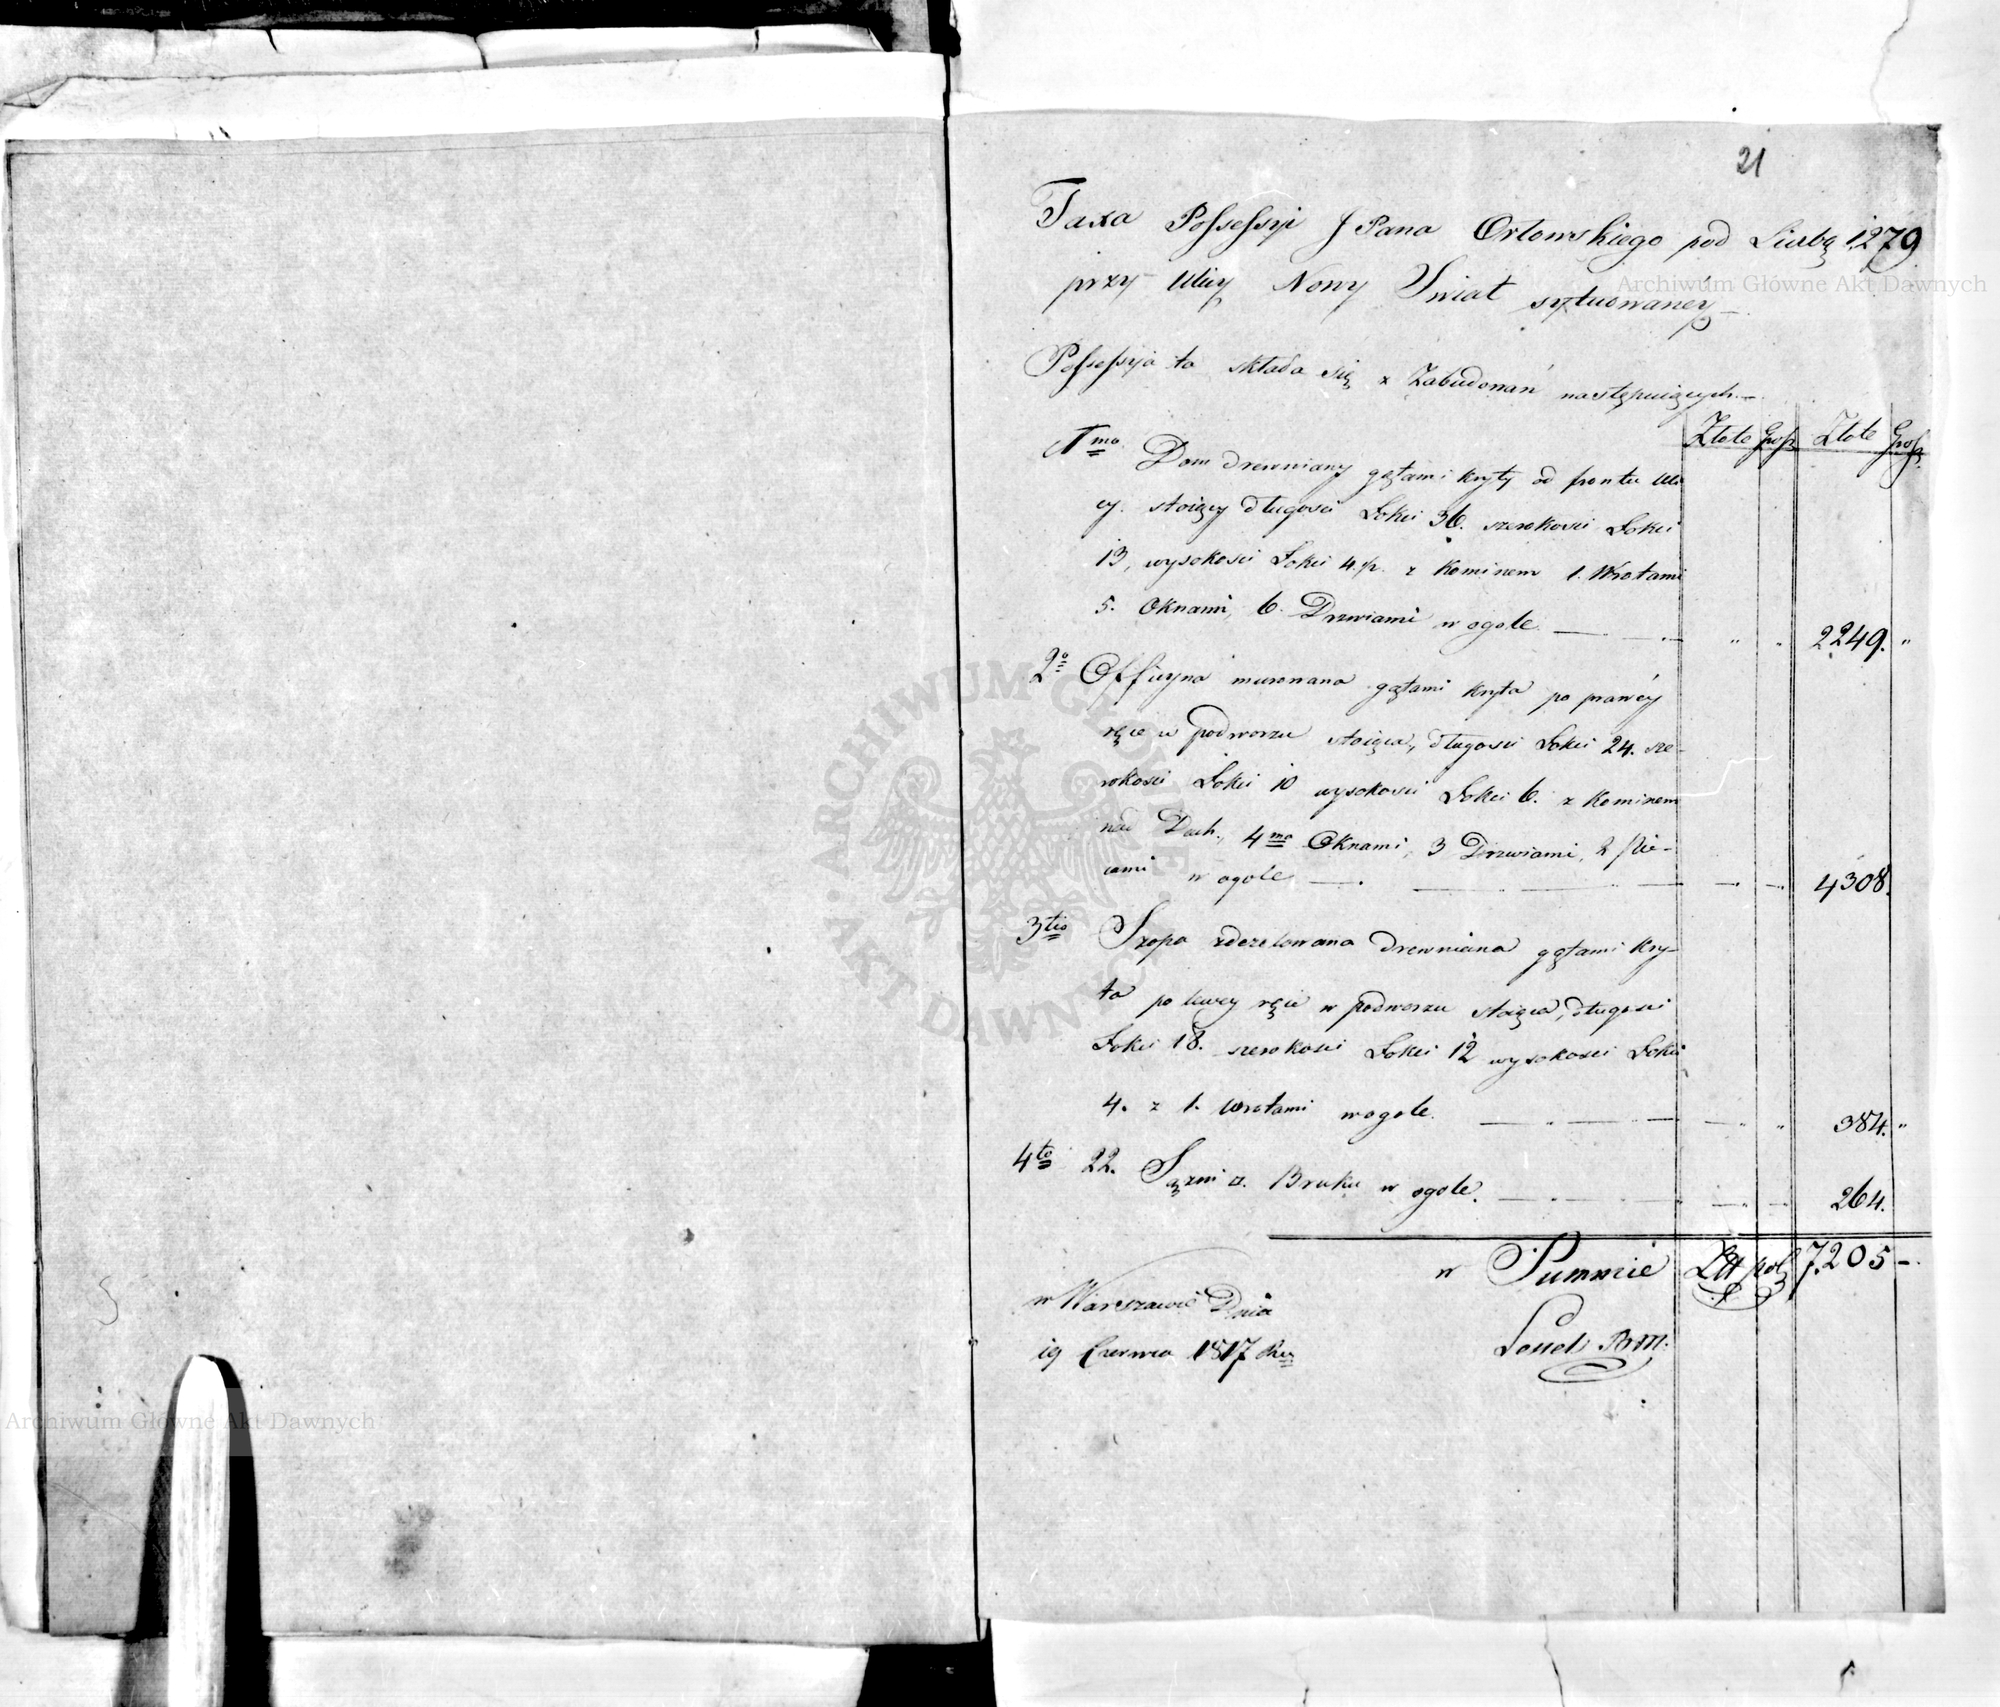 21
Taxa Possessyi J Pana Orłowskiego pod Liczbą 1279
przy Ulicy Nowy Swiat sytuowaney
Archiwum Główne Akt Dawnych
Possessyia ta składa się z Zabudowań następuiących.
Złote Grosz Złote Grosz
1mo Dom drewniany gątami kryty od frontu Uli
cy stoiący długosci Łokci 36. szerokosci Łokci
13, wysokosci Łokci 4. z Kominem 1. Wrotami
5. Oknami, 6. Drzwiami w ogole 2249.
2o Officyna murowana gątami kryta po prawey
ręce w podworzu stoiąca, długosci Łokci 24. sze-
rokosci Łokci 10 wysokosci Łokci 6. z Kominem
nad Dach, 4ma Oknami, 3 Drzwiami, 2 Pie-
cami w ogole 4308.
3tio Szopa zdezelowana drewniana gątami kry-
ta po lewey ręce w podworzu stoiąca, długosci
Łokci 18. szerokosci Łokci 12 wysokosci Łokci
4. z 1. Wrotami w ogole. 384.
4to 22. Sążni □. Bruku w ogole. 264.
w Summie Złt pol 7.205 -
w Warszawie Dnia
19 Czerwca 1817 Ru
BM.
ARCHIWUM GŁÓWNE AKT DAWNYCH
Archiwum Główne Akt Dawnych